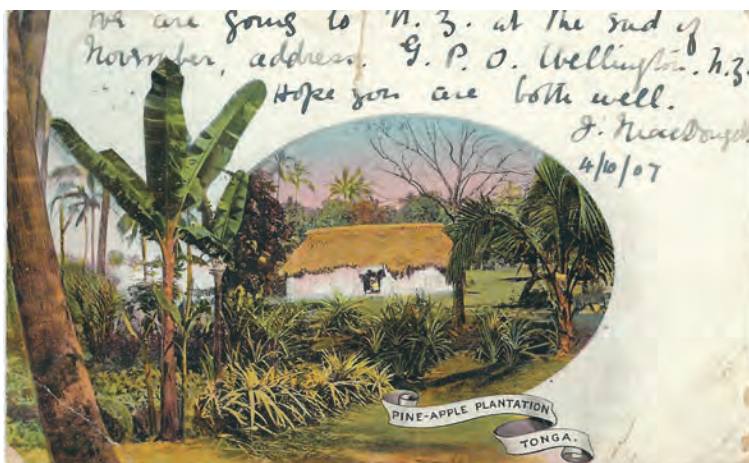 We are going to N. Z. at the end of
November, address. G. P. O. Wellington. N.Z.
Hope you are both well.
J. MacDougal
4/10/07
PINE-APPLE PLANTATION
TONGA.